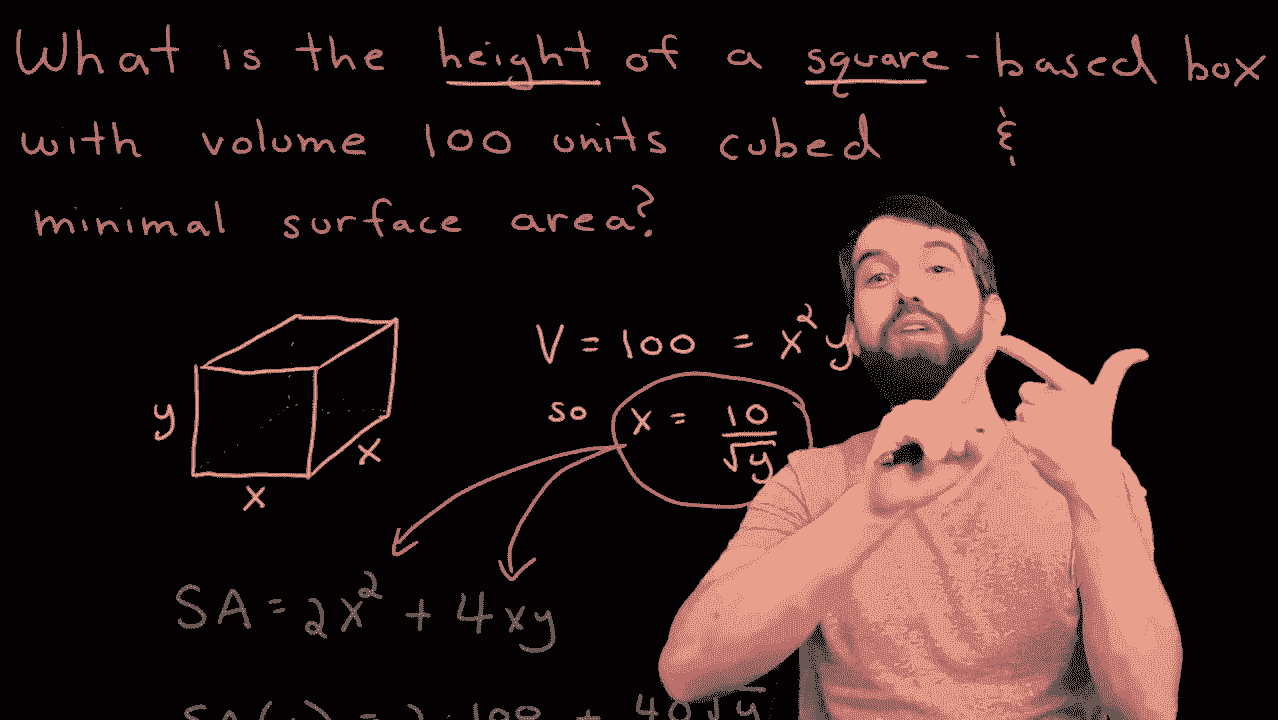 What is the height of a square-based box
with volume 100 units cubed &
minimal surface area?
V = 100 = x² y
so x = 10/√y
y
x
x
SA = 2x² + 4xy